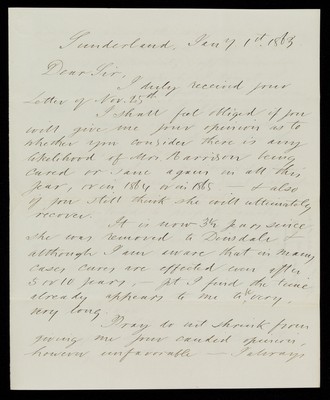 Sunderland, Jany 1st 1863
Dear Sir,
I duly received your
Letter of Nov. 25th
I shall feel obliged if you
will give me your opinion as to
whether you consider there is any
likelihood of Mrs. Harrison being
cured or sane again in all this
Year, or in 1864 or in 1865 — & also
if you still think she will ultimately
recover.
It is now 3¼ years since
she was removed to Dinsdale &
although I am aware that in many
cases cures are effected even after
5 or 10 years, — yet I find the time
already appears to me to be very,
very long.
Pray do not shrink from
giving me your candid opinion,
however unfavorable — I always